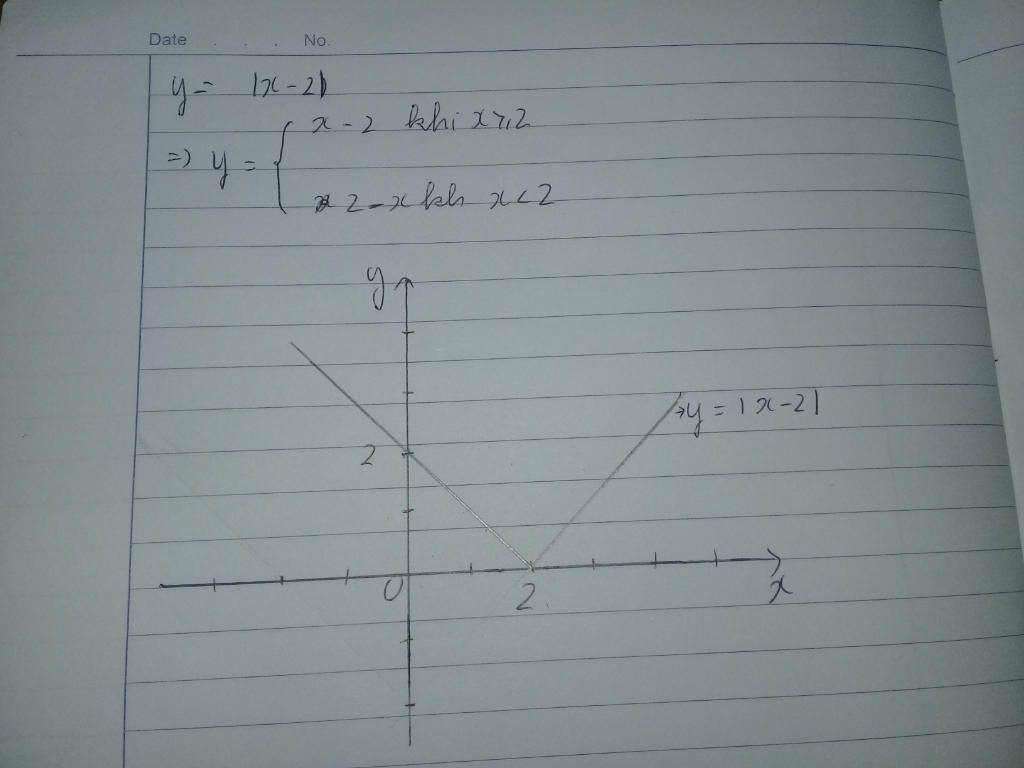 Date . . . . No.
y = |x - 2|
=> y = { x - 2 khi x ≥ 2
2 - x kh x < 2
y
y = |x - 2|
2
0
2
x